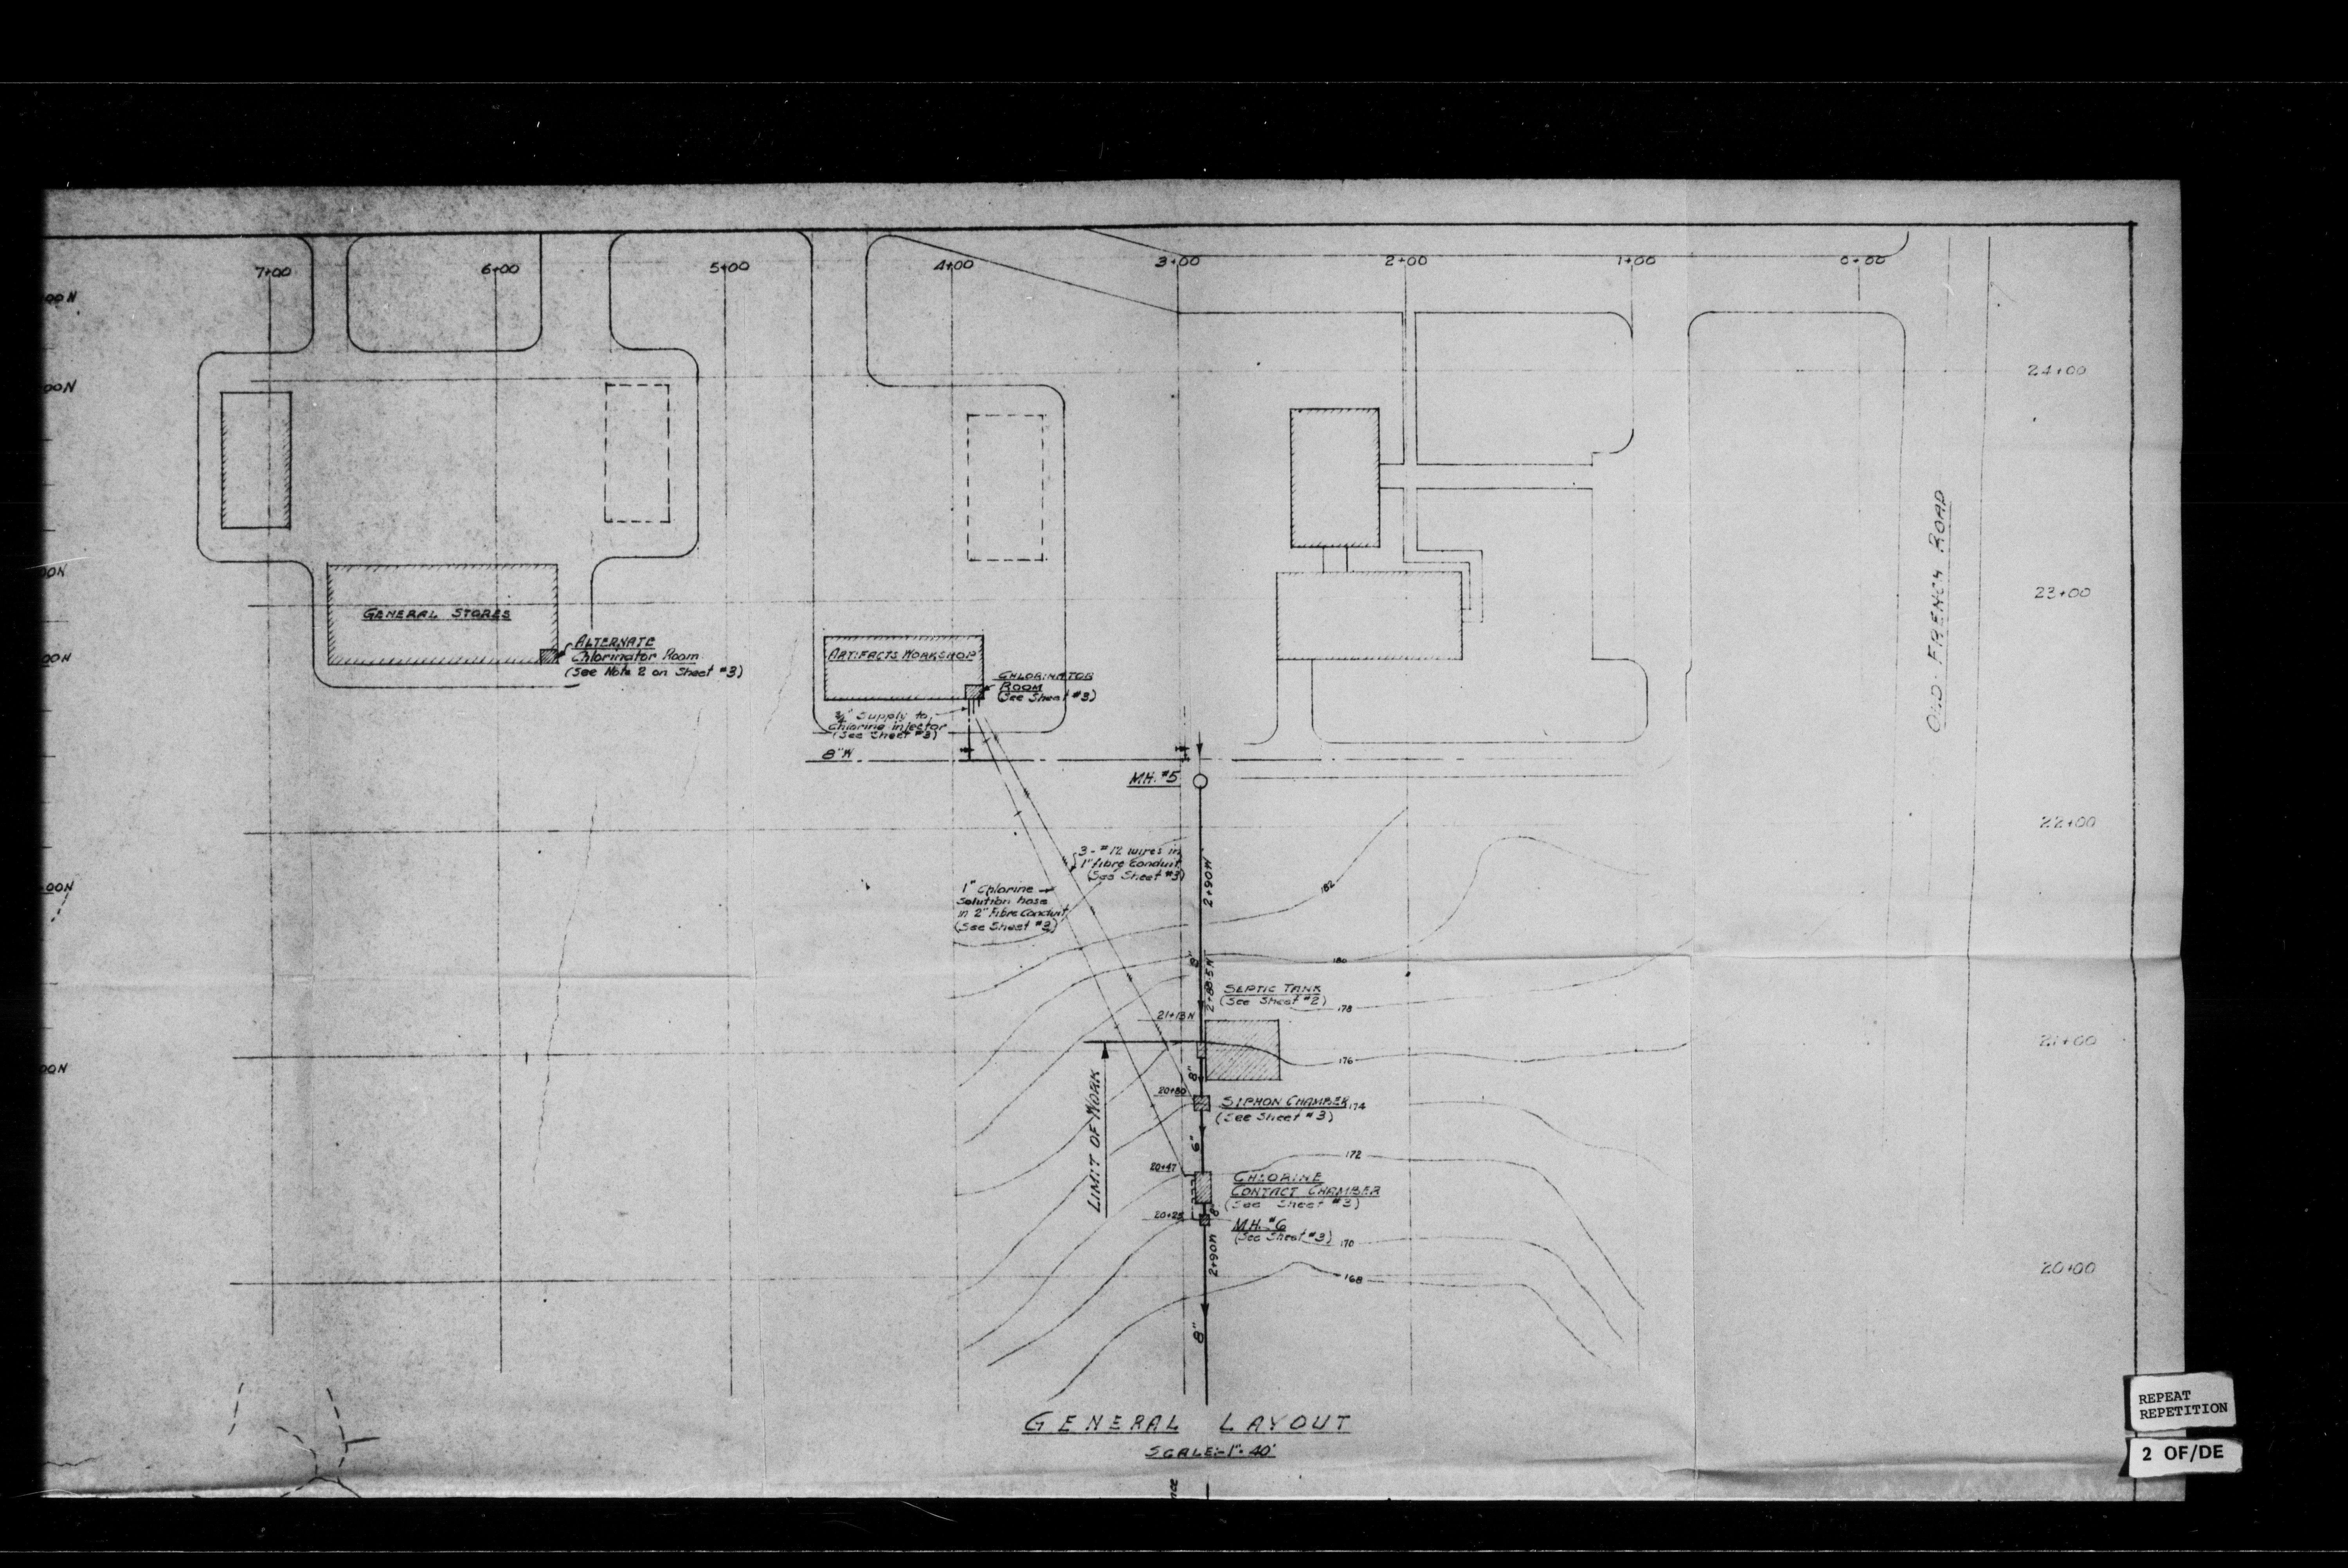 7+00
6+00
5+00
4+00
3+00
2+00
1+00
0+00
00N
00N
00N
00N
00N
00N
24+00
23+00
22+00
21+00
20+00
OLD FRENCH ROAD
GENERAL STORES
ALTERNATE
Chlorinator Room
(See Note 2 on Sheet #3)
ARTIFACTS WORKSHOP
CHLORINATOR
ROOM
(See Sheet #3)
3/4" Supply to
Chlorine injector
(See Sheet #3)
8"W
MH. #5
3-#12 wires in
1" fibre conduit
(See Sheet #3)
1" Chlorine
Solution hose
in 2" Fibre Conduit
(See Sheet #3)
2+90W
182
180
8"
SEPTIC TANK
(See Sheet #2)
178
21+13N
176
8"
LIMIT OF WORK
20+80
SIPHON CHAMBER
174
(See Sheet #3)
6"
172
20+47
CHLORINE
CONTACT CHAMBER
(See Sheet #3)
8"
20+25
M.H. #6
(See Sheet #3)
170
2+90W
168
8"
GENERAL LAYOUT
SCALE:-1"=40'
REPEAT
REPETITION
2 OF/DE